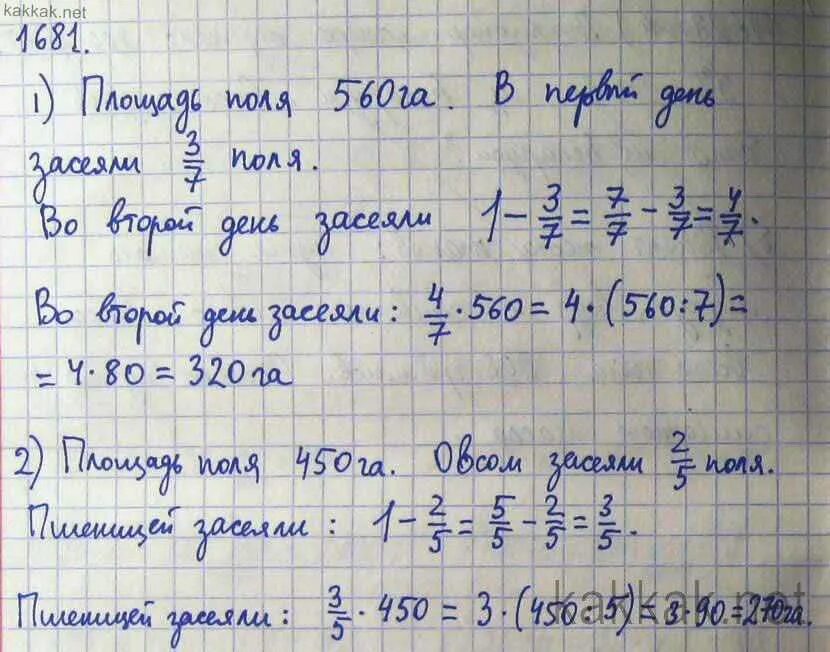 kakkak.net
1681.
1) Площадь поля 560га. В первый день
засеяли 3/7 поля.
Во второй день засеяли 1 - 3/7 = 7/7 - 3/7 = 4/7.
Во второй день засеяли: 4/7 · 560 = 4 · (560:7) =
= 4 · 80 = 320га
2) Площадь поля 450га. Овсом засеяли 2/5 поля.
Пшеницей засеяли: 1 - 2/5 = 5/5 - 2/5 = 3/5.
Пшеницей засеяли: 3/5 · 450 = 3 · (450:5) = 3 · 90 = 270га.
kakkak.net